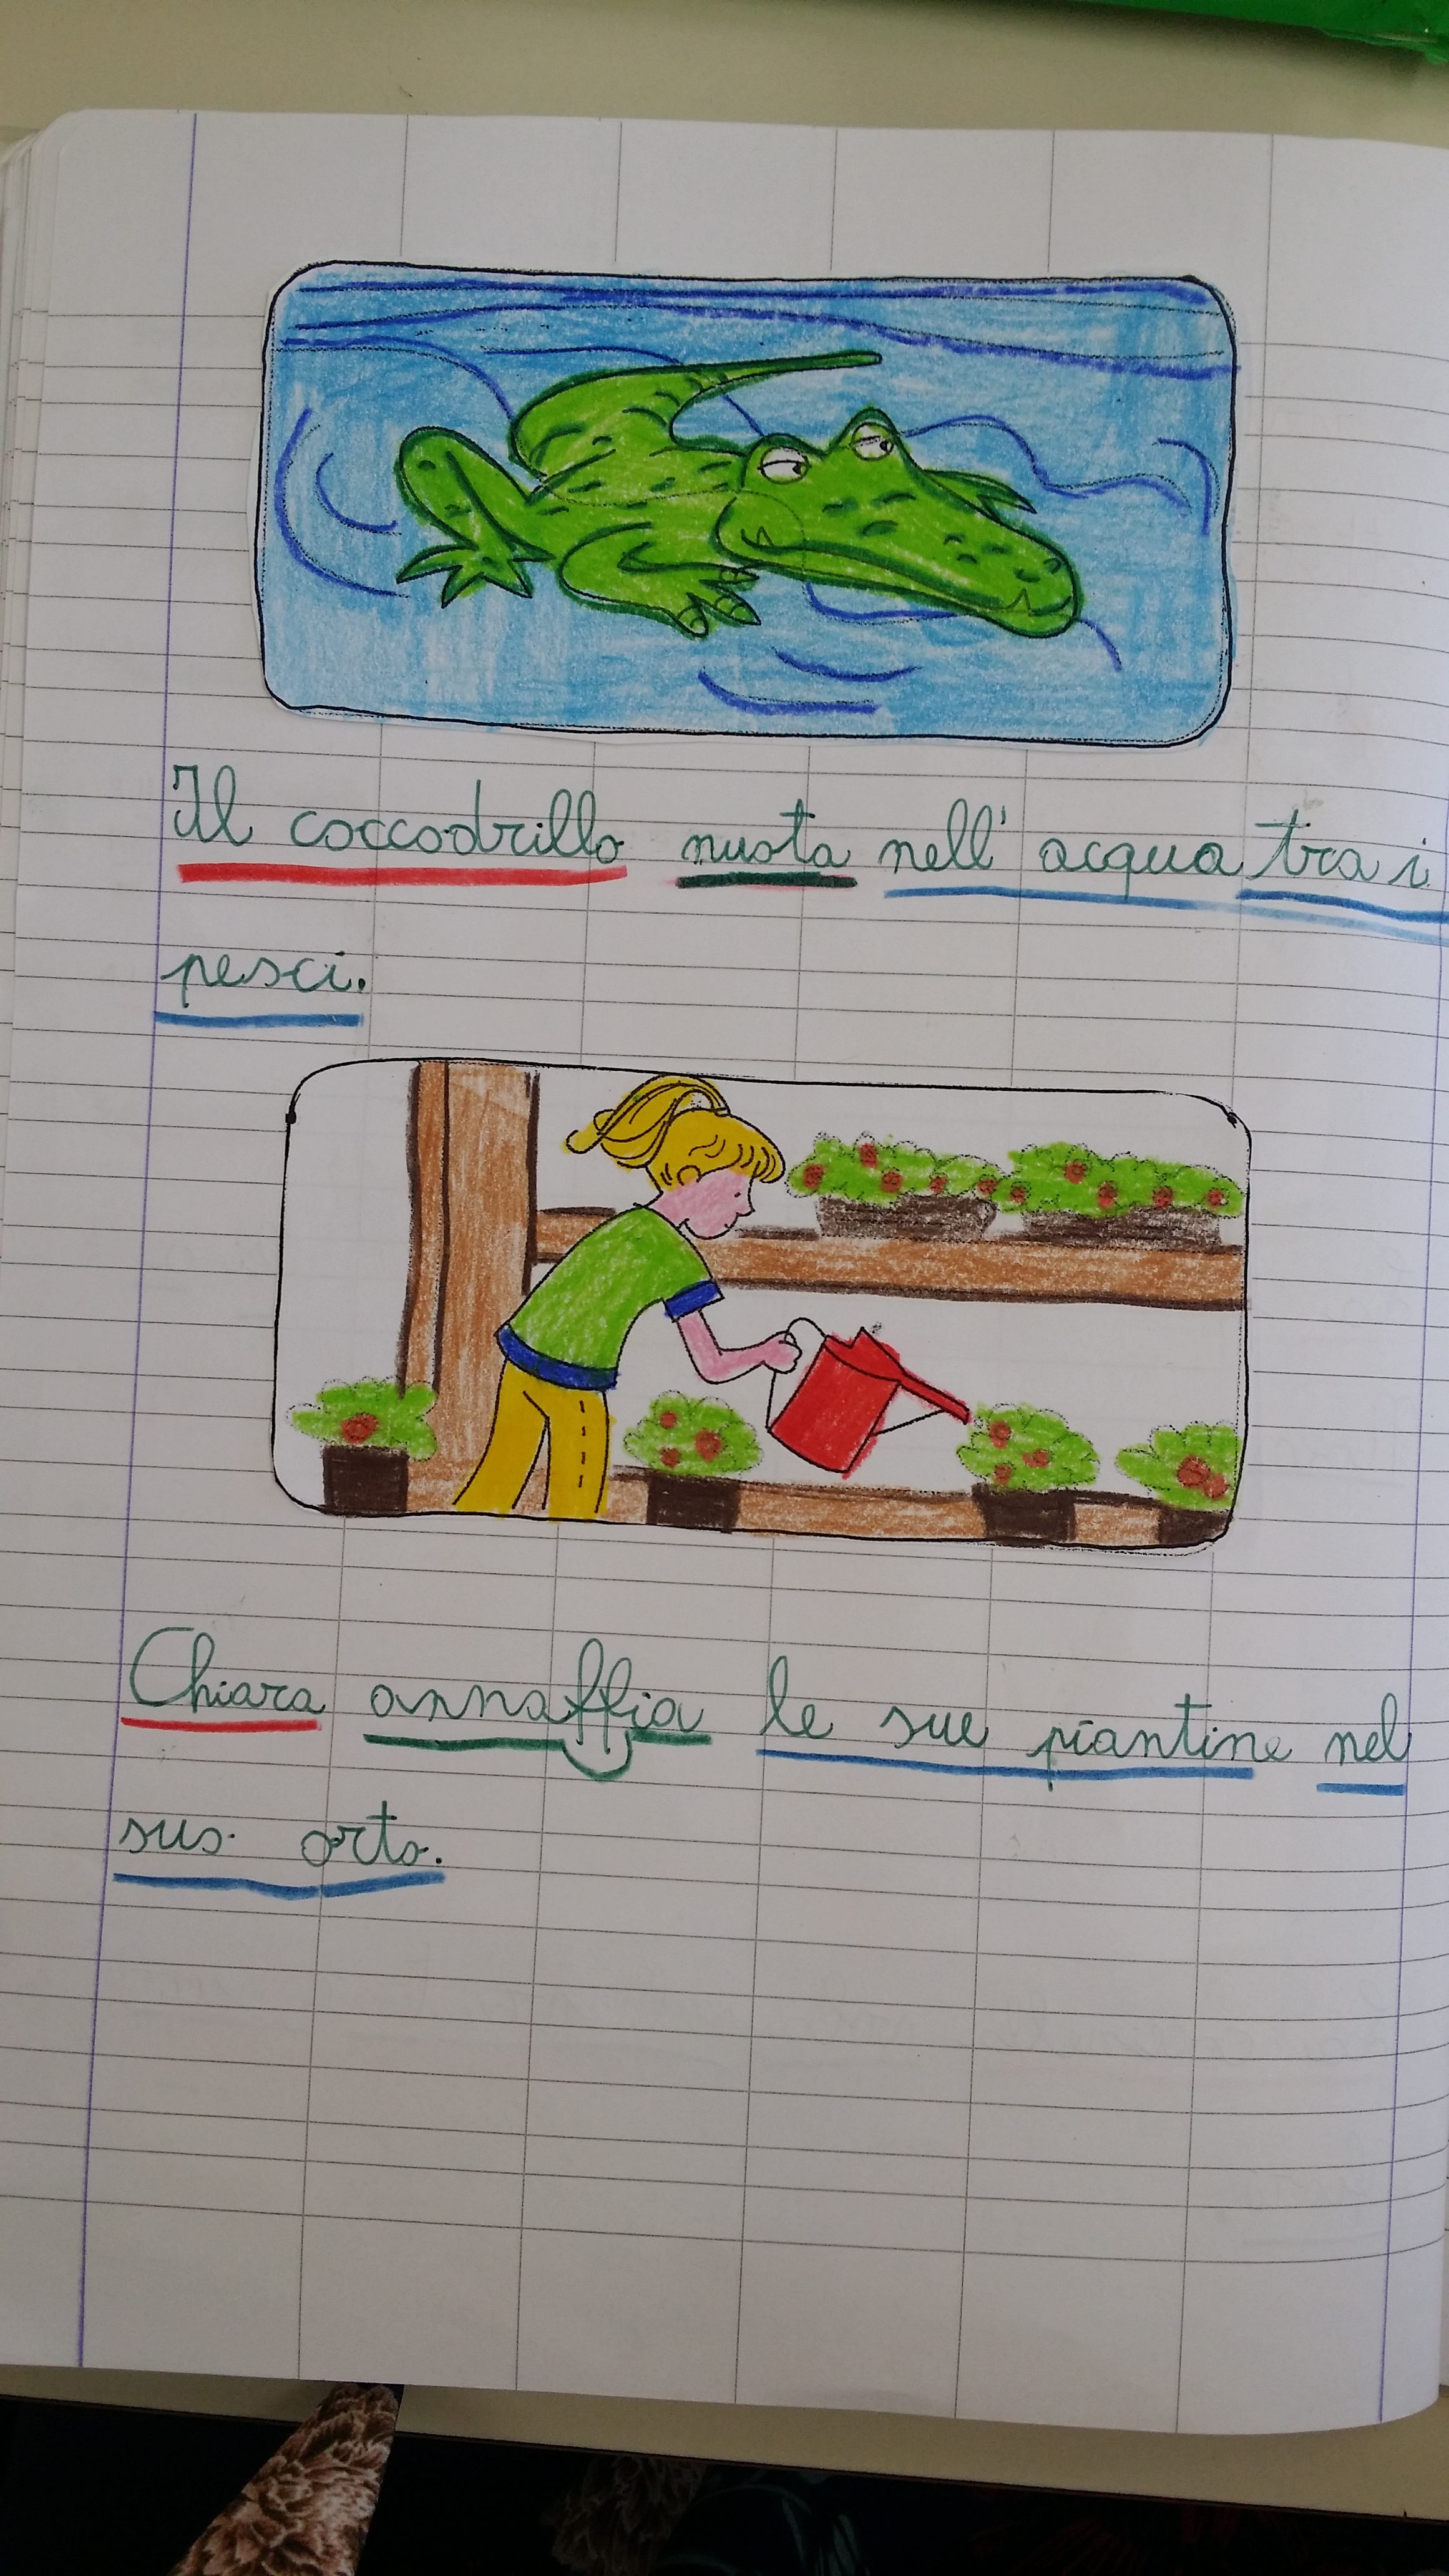 Il coccodrillo nuota nell' acqua tra i
pesci.
Chiara annaffia le sue piantine nel
suo orto.